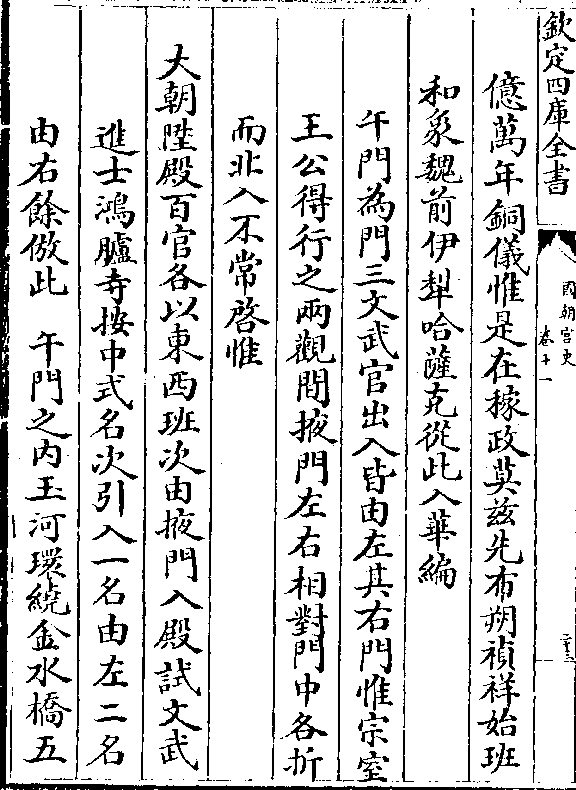 欽定四庫全書
國朝宮史
卷十一
億萬年銅儀惟是在稼政莫兹先布朔禎祥始班
和象魏前伊犁哈薩克從此入華編
午門為門三文武官出入皆由左其右門惟宗室
王公得行之兩觀間掖門左右相對門中各折
而北入不常啓惟
大朝陞殿百官各以東西班次由掖門入殿試文武
進士鴻臚寺按中式名次引入一名由左二名
由右餘倣此　午門之內玉河環繞金水橋五